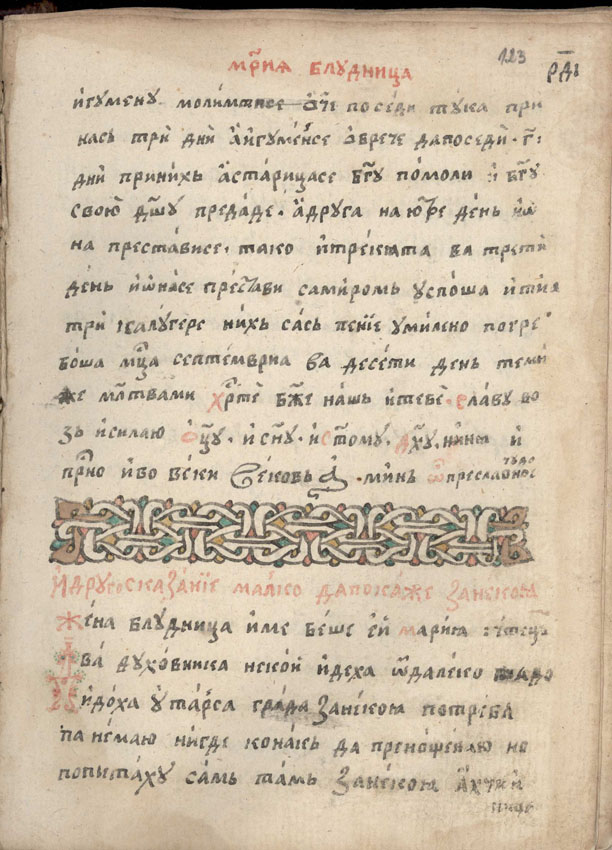 мр҃иꙗ блꙋдница
123
игꙋменꙋ молимтисе ѻч҃е поседи тꙋка при
нась три днй а҆игꙋменсе ѻ҆брече дапоседй · г҃:
днй принихь а҆старицасе бг҃ꙋ помоли и҆ бг҃ꙋ
своюⷨ дш҃ꙋ предаде · а҆дрꙋга на ютре день иѡ
на преставнсе · тако и҆трекꙗта ва трети
день иѡ҆насе престави самиромь ꙋспоша и҆тиꙗ
трй калꙋгере нихь сась пение ꙋмилено погре
боша мц҃а септемвриа ва десети день теми
же мл҃твами хр҃те бж҃е нашь и҆тебе · славꙋ во
зь исилаю ѻц҃ꙋ · и сн҃ꙋ · истомꙋ · дх҃ꙋ · нин҃ꙗ и҆
прⷭно иво веки вековь а · минь ѿ преславное
чꙋдо
И҆дрꙋго сказание малко дапокаже занекоꙗ
жена блꙋдница име беше ей мариꙗ
два дꙋховника некой идеха ѿдалеко
и҆дохa ꙋ тарса града занекоꙗ потреба
па немаю нигде конакь да преношеваю но
попытахꙋ самь тамь занекоꙗ